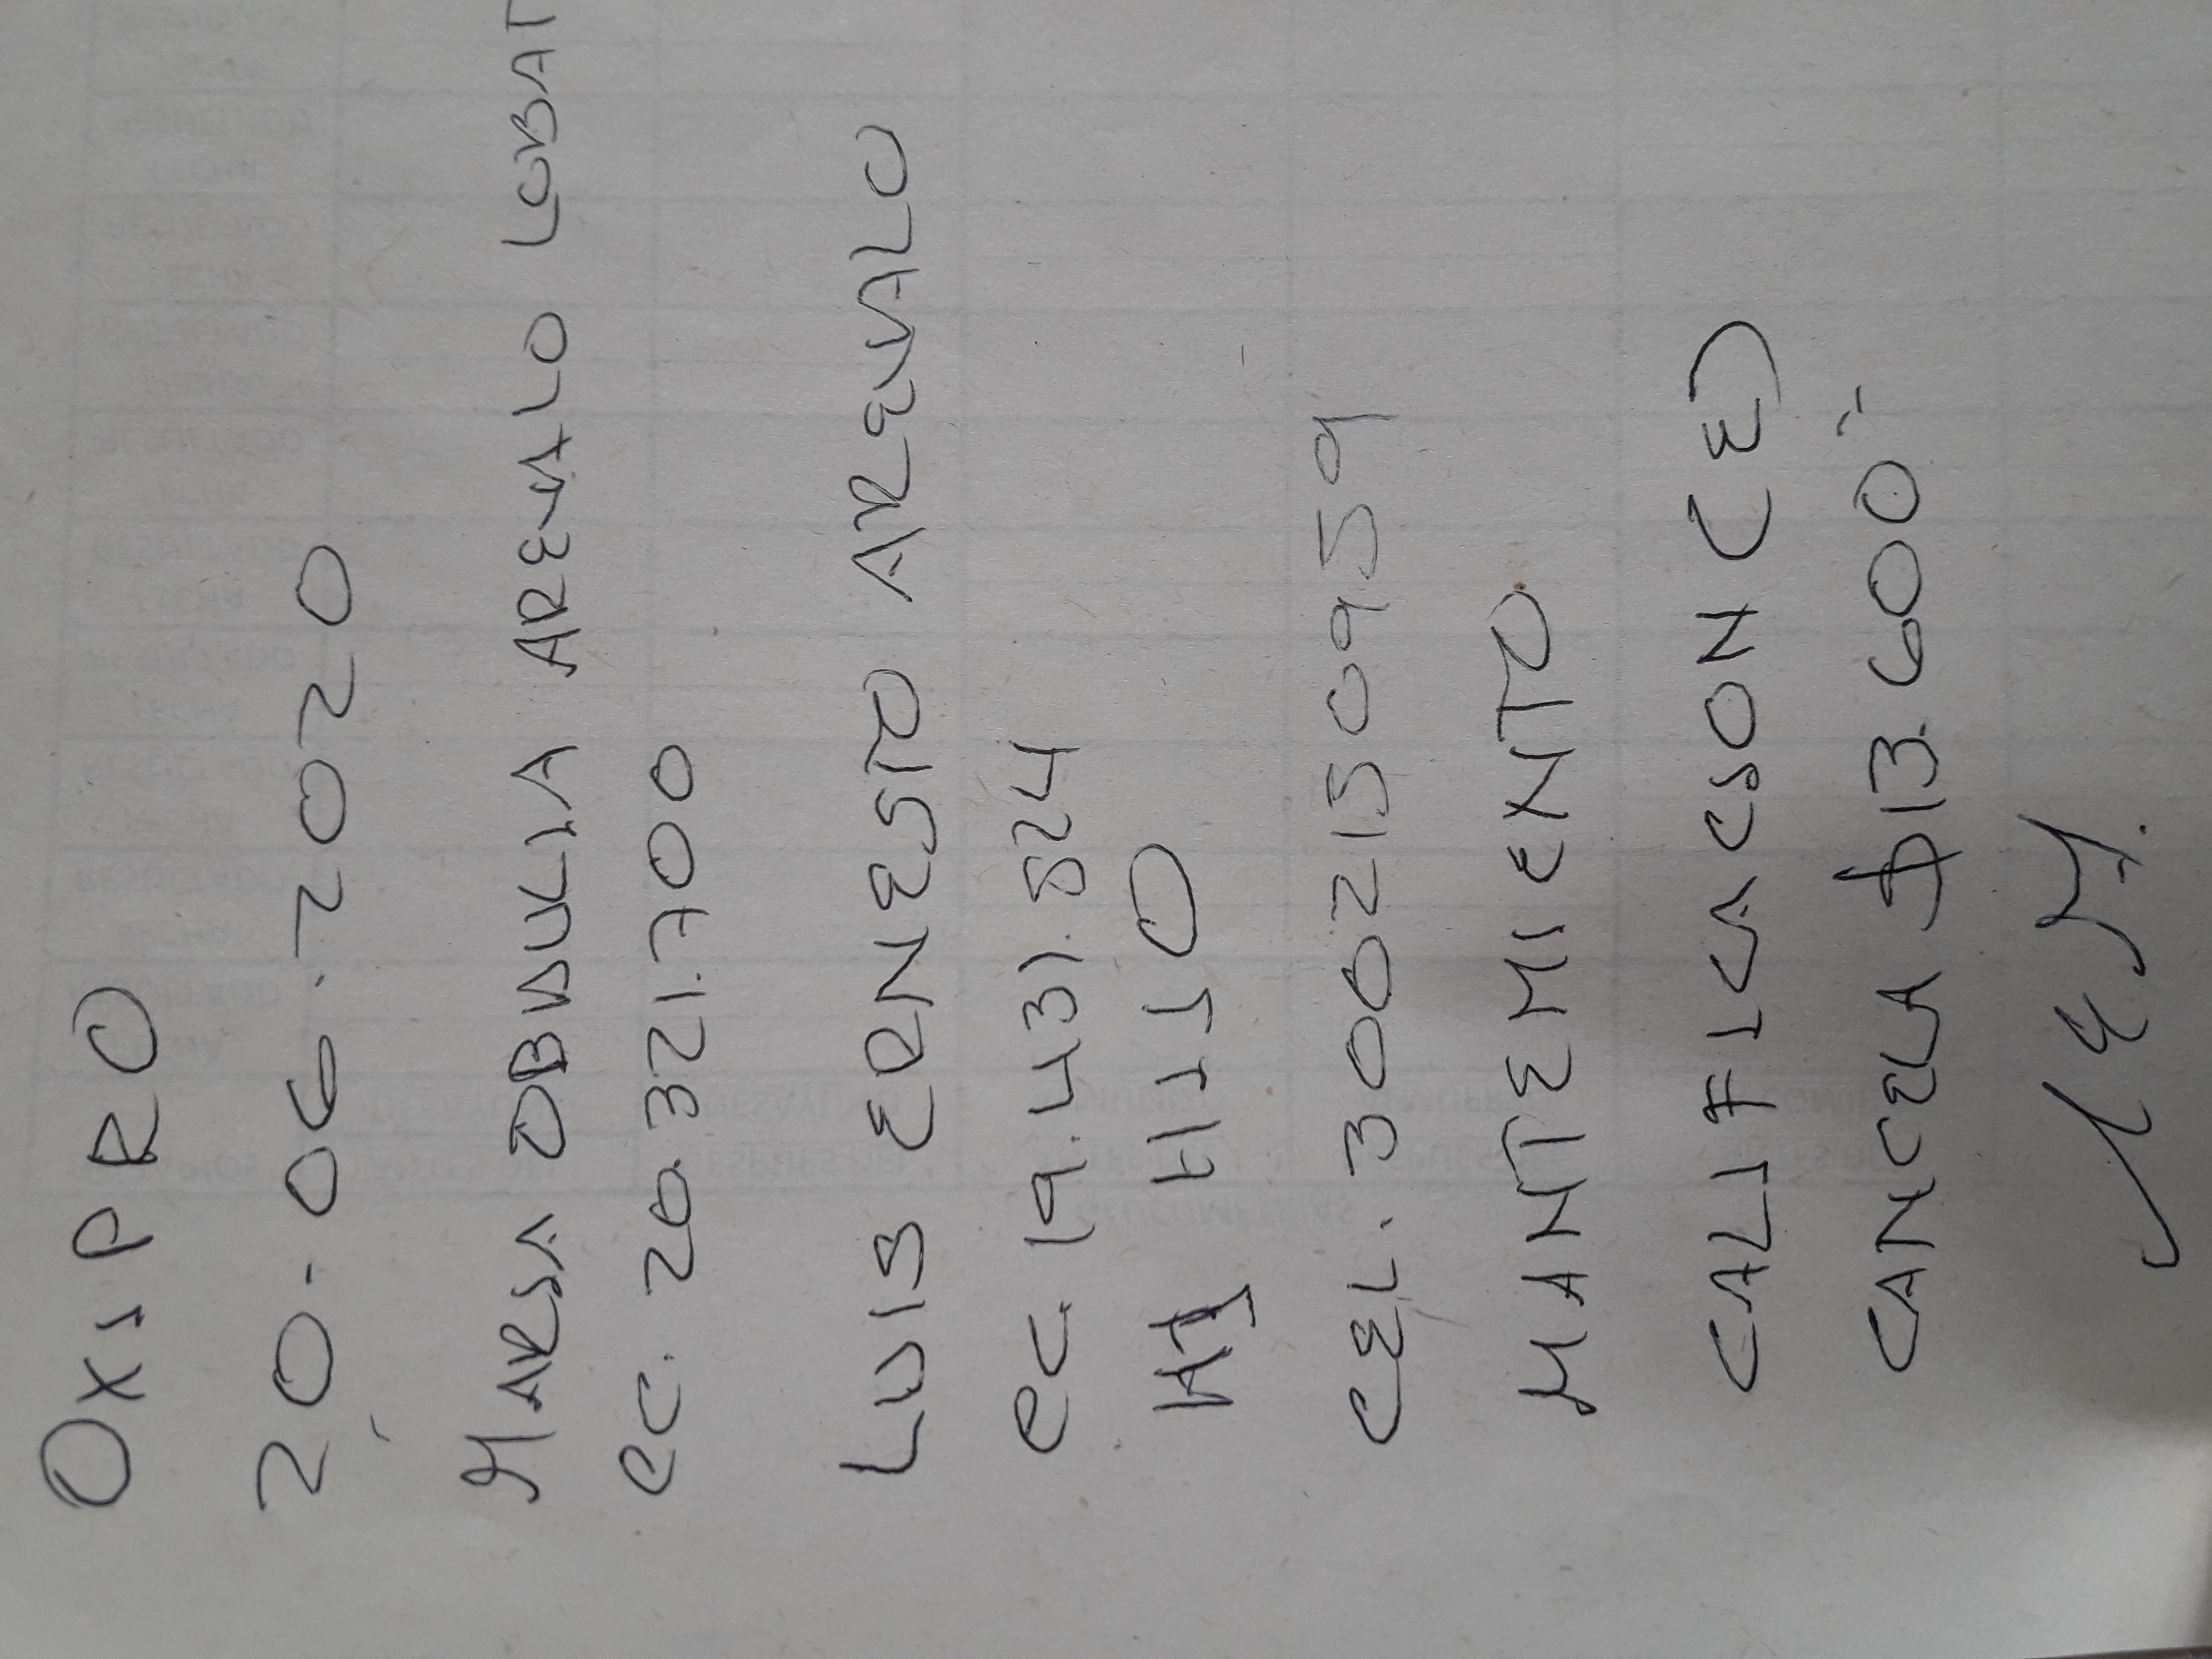 OXIPRO
20-06.2020
MARIA OBDULIA AREVALO LOBAT
CC. 20.321.700
LUIS ERNESTO AREVALO
CC. 19.431.824
HIJO
CEL. 3002150959
MANTEMIENTO
CALIFICACION (E)
CANCELA $13.600"